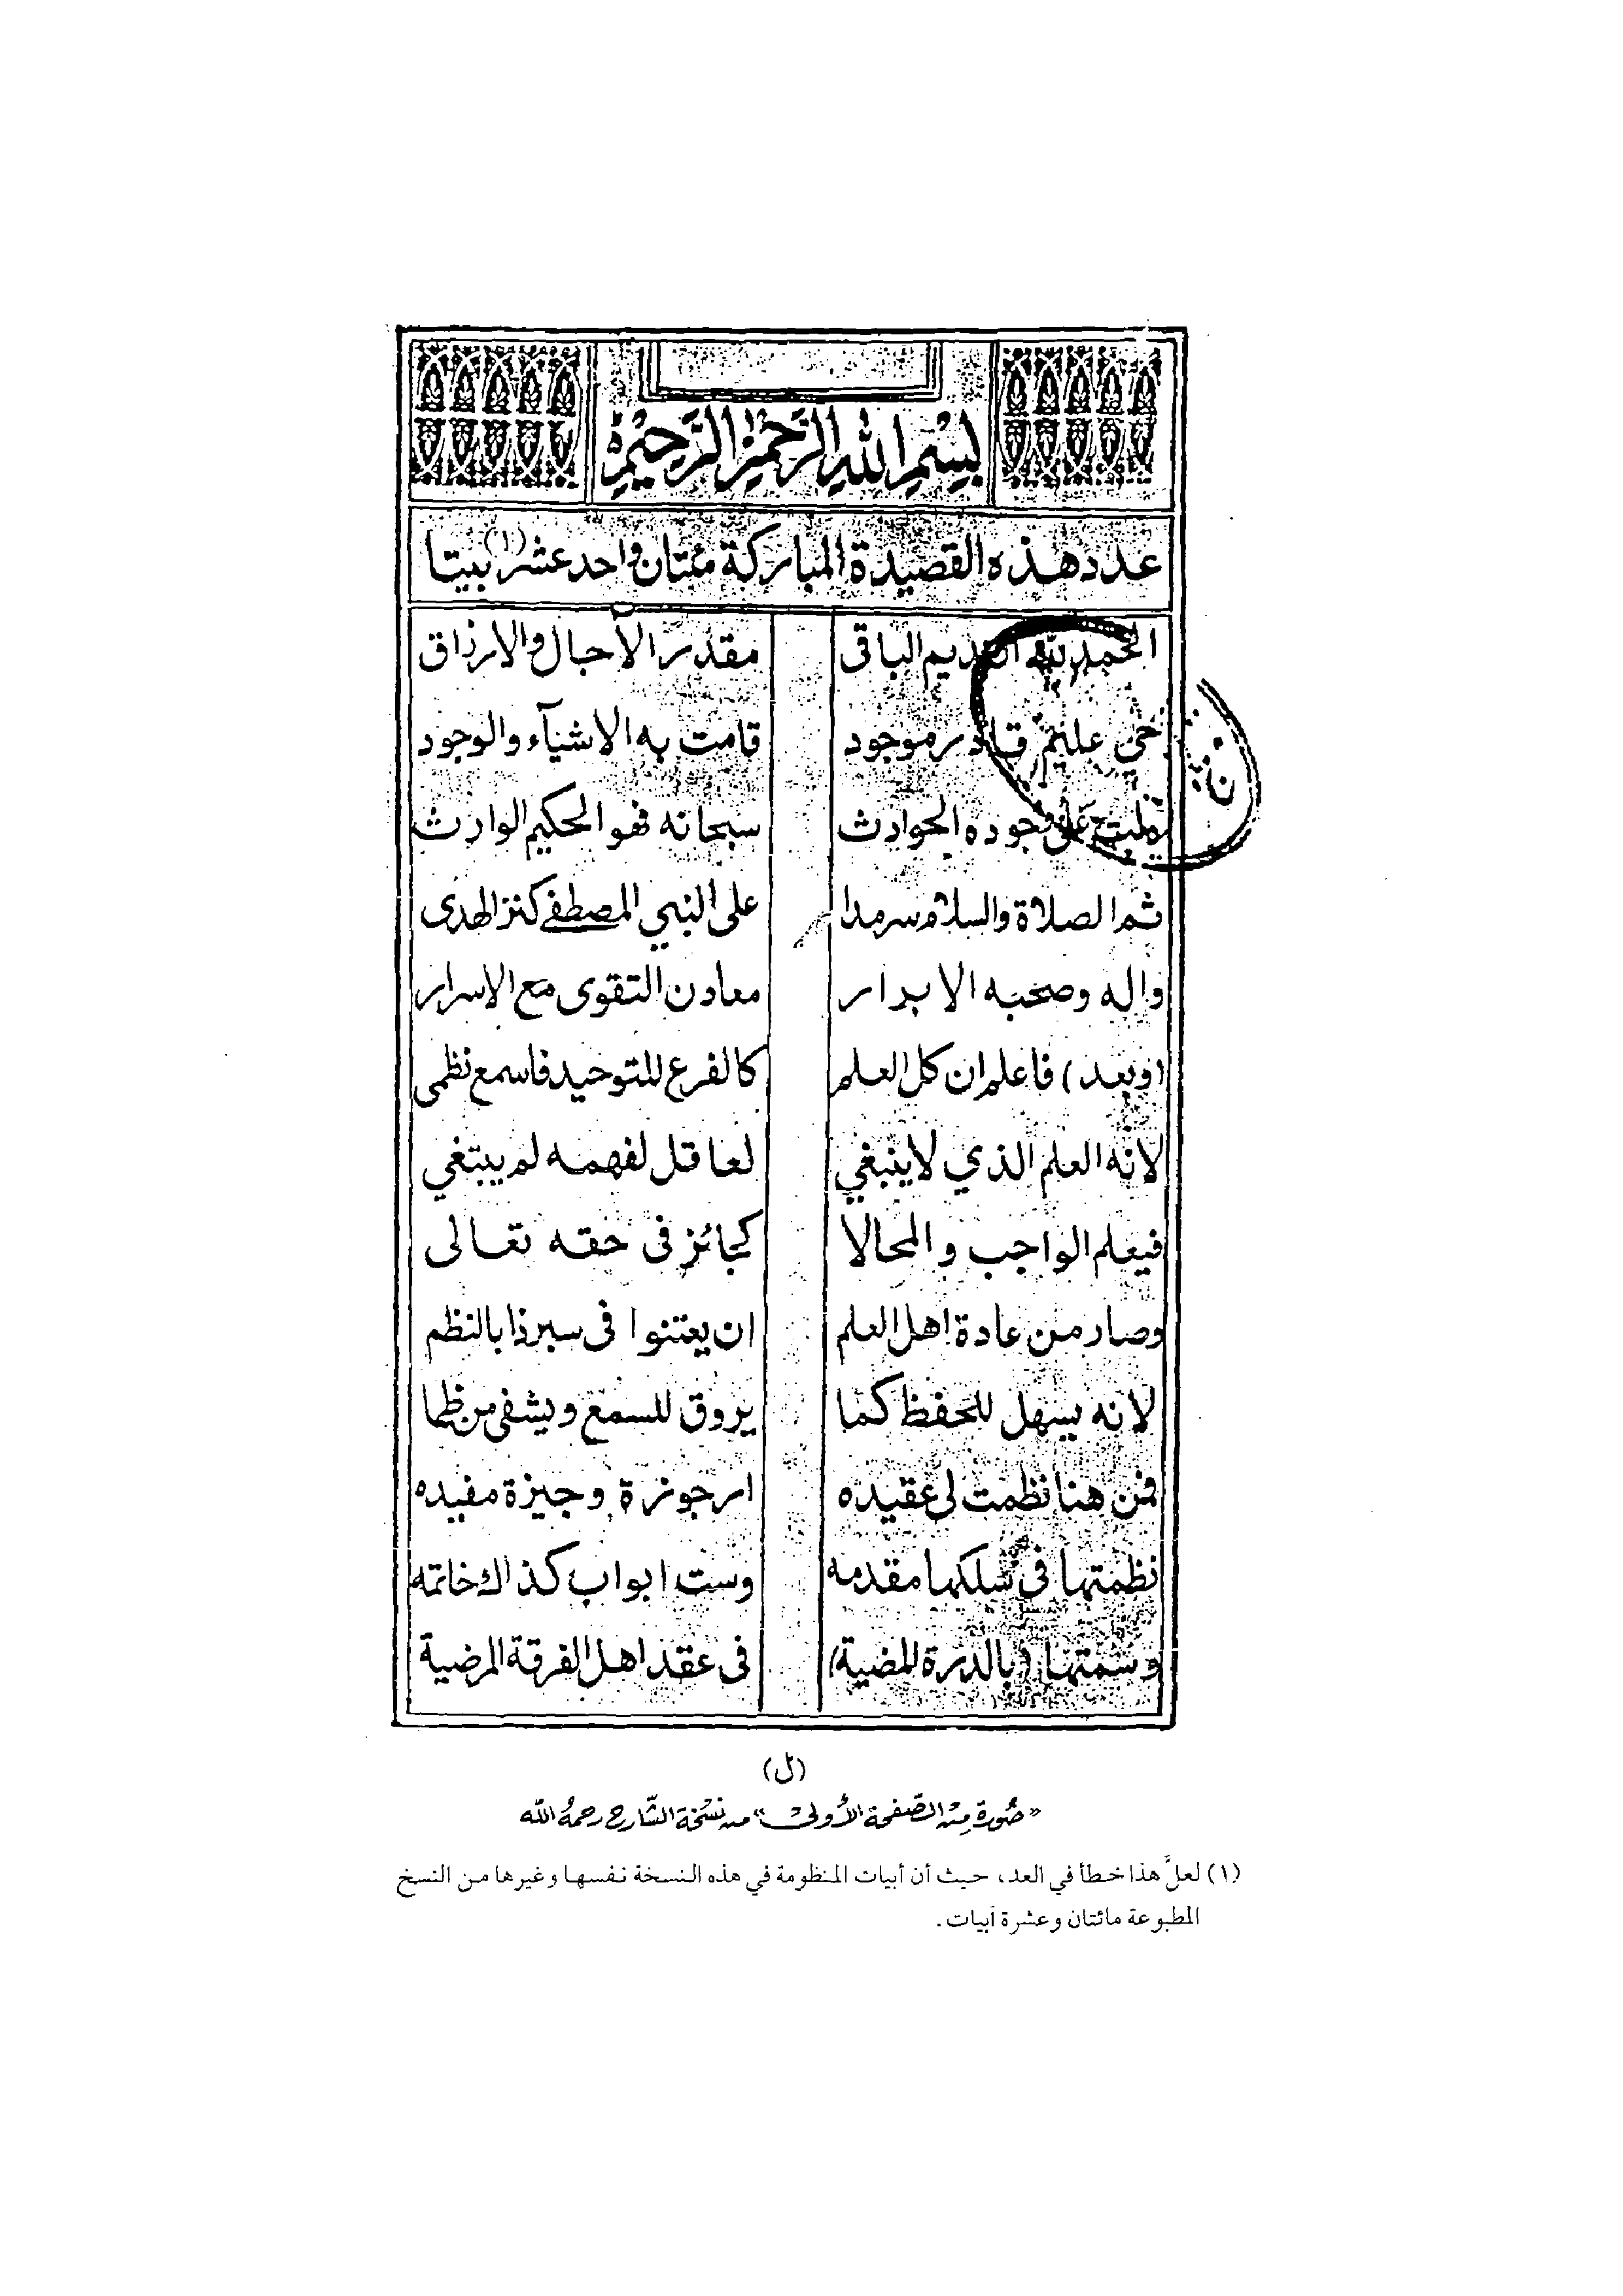 بِسْمِ اللهِ الرَّحْمٰنِ الرَّحِيْمِ
عدد هذه القصيدة المباركة مئتان واحد عشر (١) بيتا
الحمد لله القديم الباقى مقدر الآجال والارزاق
حي عليم قادر موجود قامت به الاشيآء والوجود
دلت على وجوده الحوادث سبحانه فهو الحكيم الوارث
ثم الصلاة والسلام سرمدا على النبي المصطفى كنز الهدى
واله وصحبه الابرار معادن التقوى مع الاسرار
(وبعد) فاعلم ان كل العلم كالفرع للتوحيد فاسمع نظمى
لانه العلم الذي لا ينبغي لعاقل لفهمه لم يبتغي
فيعلم الواجب والمحالا كجائز فى حقه تعالى
وصار من عادة اهل العلم ان يعتنوا فى سبر ذا بالنظم
لانه يسهل للحفظ كما يروق للسمع ويشفى من ظما
فمن هنا نظمت لى عقيده ارجوزة وجيزة مفيده
نظمتها فى سلكها مقدمه وست ابواب كذاك خاتمه
وسمتها (بالدرة المضية) فى عقد اهل الفرقة المرضية
(ل)
«صُورة مِن الصّفحة الأُولىٰ» من نسْخة الشّارح رحمهُ الله
(١) لعلَّ هذا خطأ في العد، حيث أن أبيات المنظومة في هذه النسخة نفسها وغيرها من النسخ
المطبوعة مائتان وعشرة أبيات.